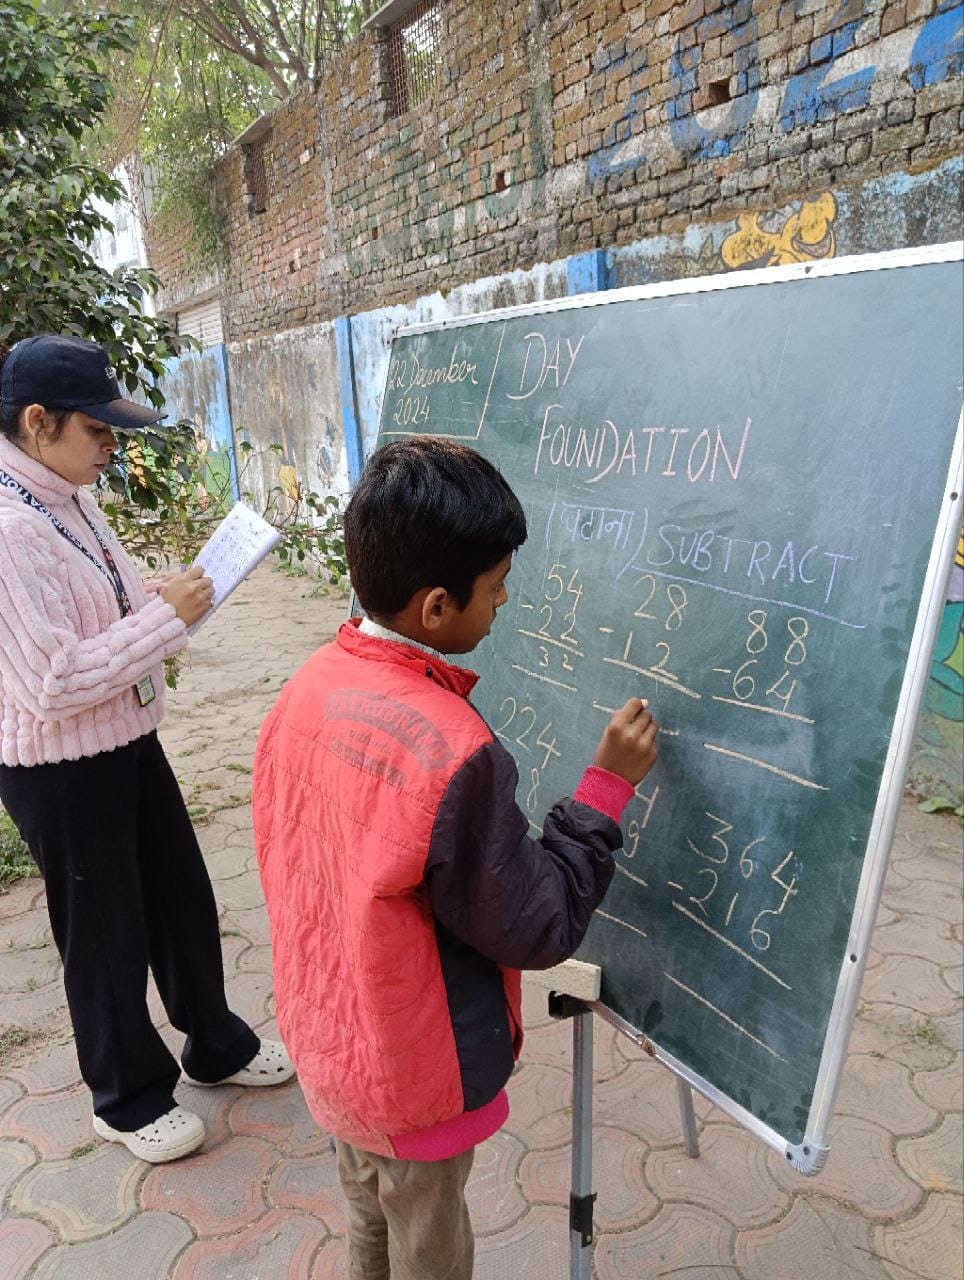 22 December
2024
DAY
FOUNDATION
(घटाना) SUBTRACT
54
- 22
32
28
- 12
88
- 64
224
8
4
8
364
- 216
2024